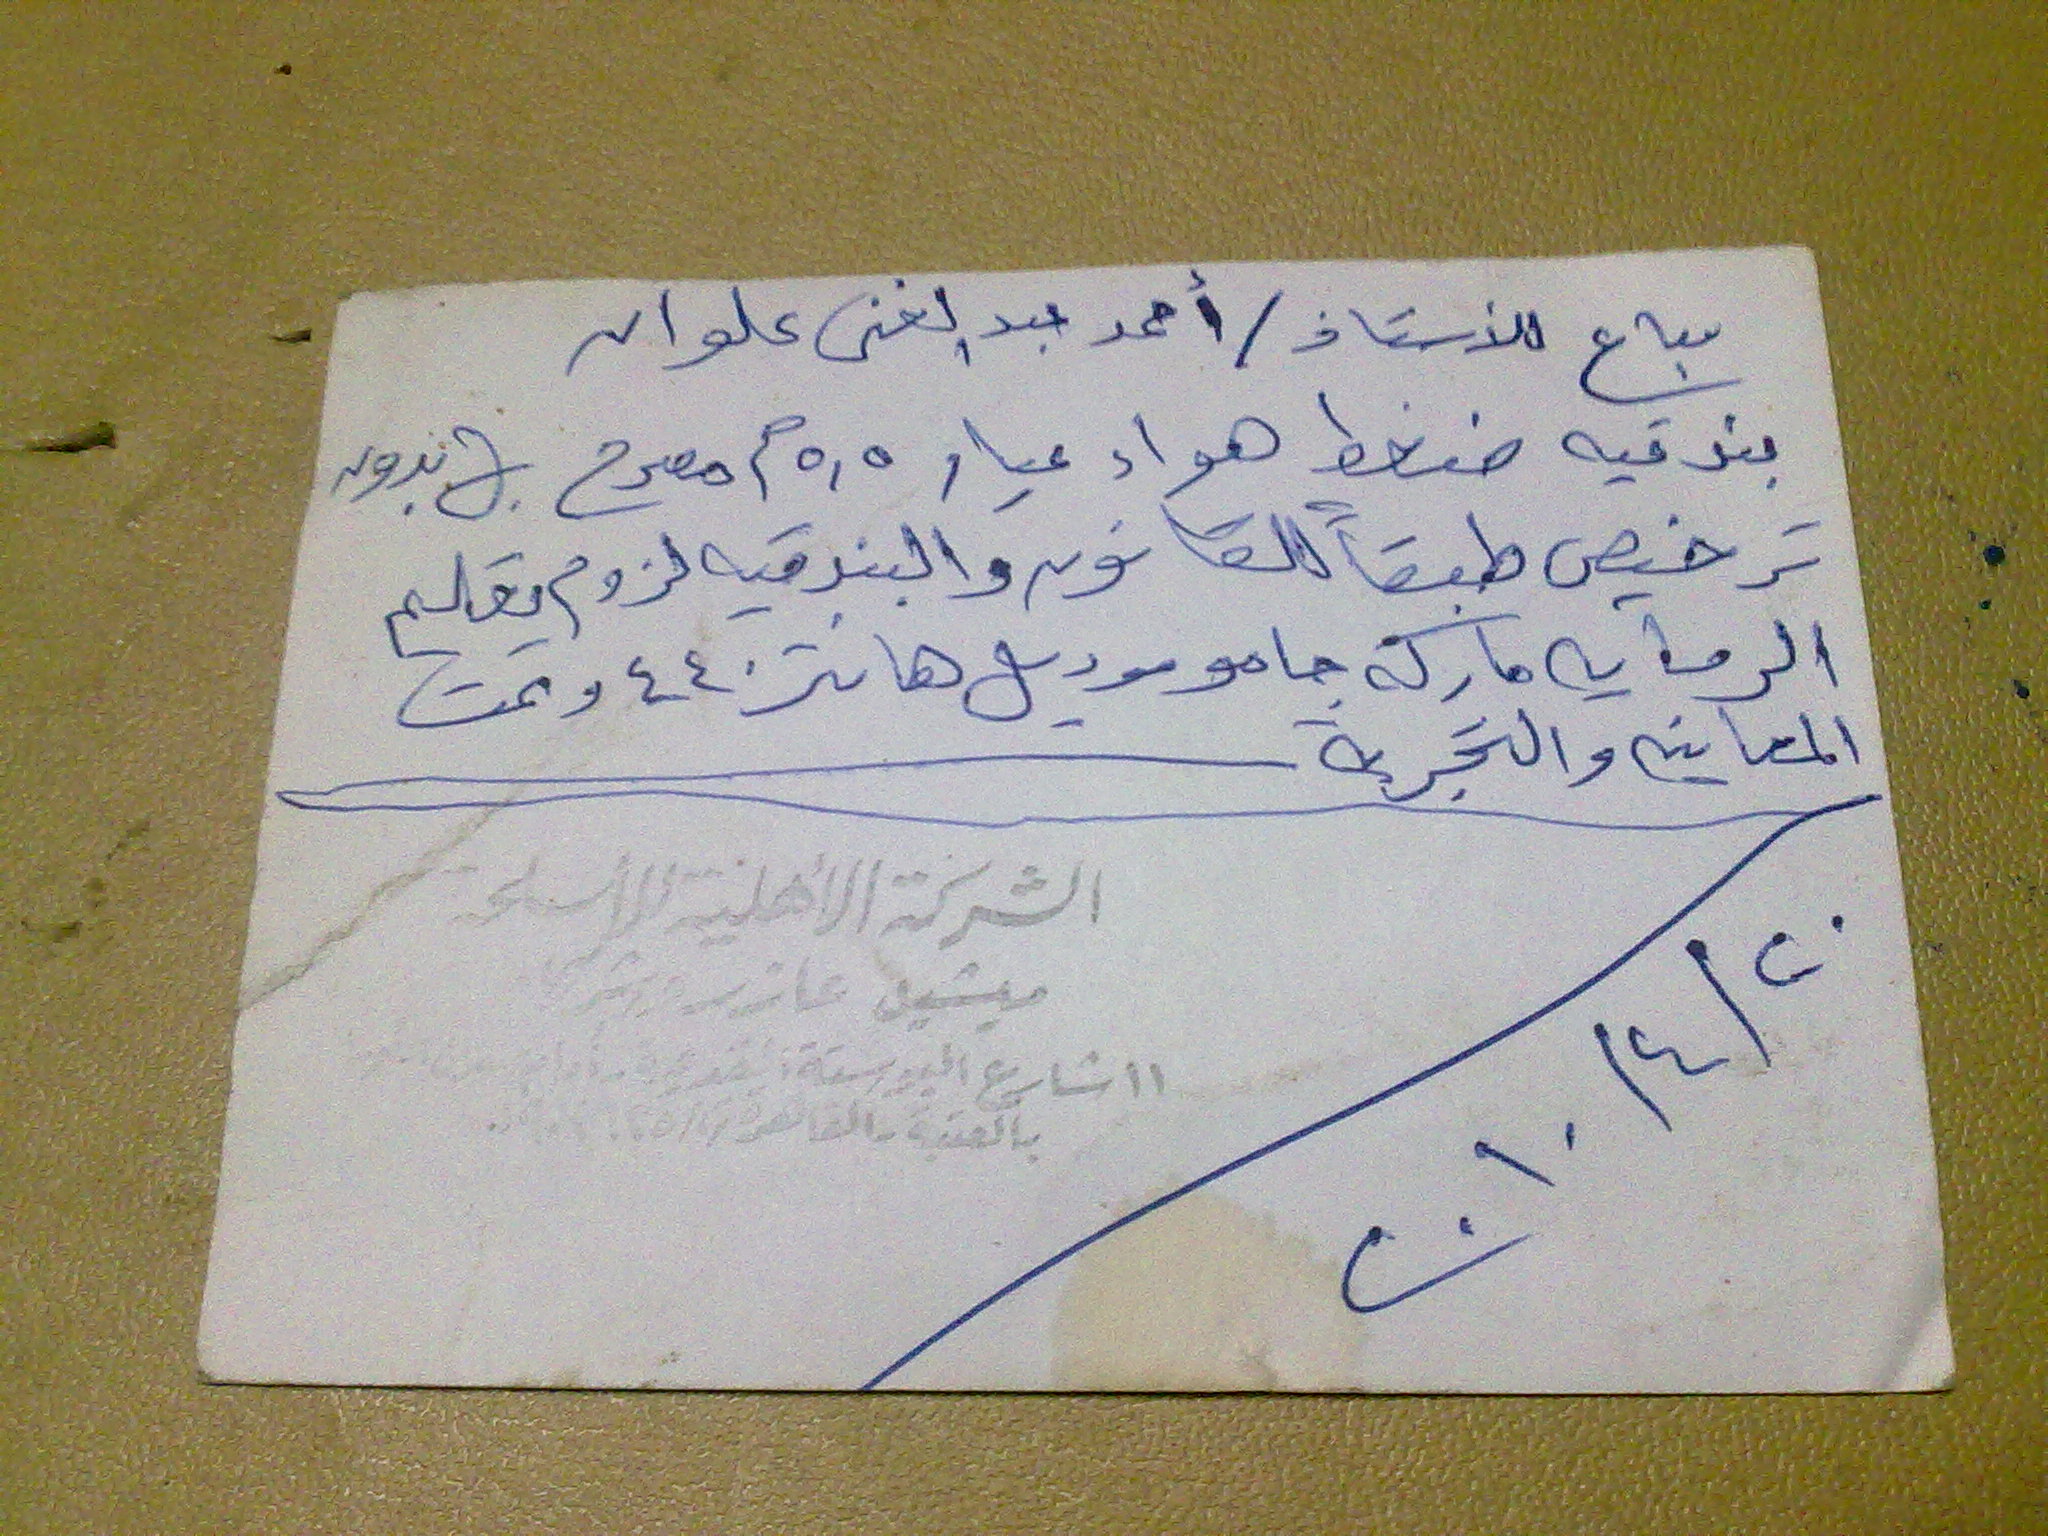 يباع للأستاذ / أحمد عبد الغنى علوان
بندقيه ضغط هواء عيار ٥,٥ م مصرح بها بدون
ترخيص طبقاً للقانون والبندقيه لزوم تعليم
الرمايه ماركة جامو موديل هانتر ٤٤٠ وتمت
المعاينه والتجربة
٢٠/٣/٢٠١٠
الشركة الأهلية للأسلحة
ميشيل عازر
١١ شارع البوستة
بالعتبة - القاهرة